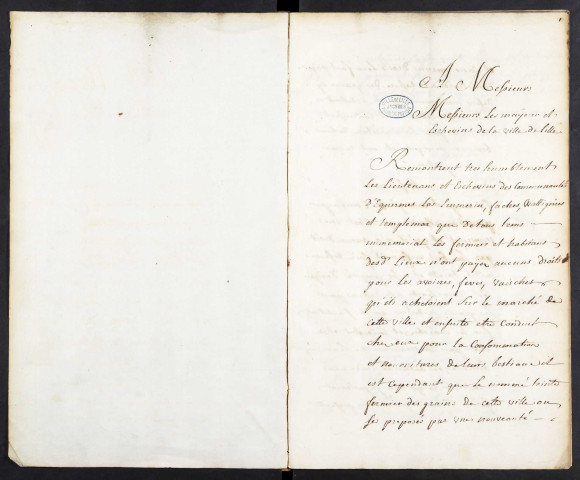 A Messieurs
Messieurs Les mayeur et
Eschevins de la ville de Lille
Remontrent tres humblement
Les Lieutenans et Eschevins des Communautés
D'Equermes Los Emmerin, faches, Wattignies
et templemar que De tous tems
immemorial les fermiers et habitans
Desd. Lieux n'ont payer aucuns droits
pour les avoines, feves,
qu'ils achetaient Sur le marché de
cette ville et ensuite etre conduit
chez eux pour la Consommation
et nouritures de leurs bestiaux il
est cependant que le nommé
fermier des grains de cette ville au
par une nouveauté